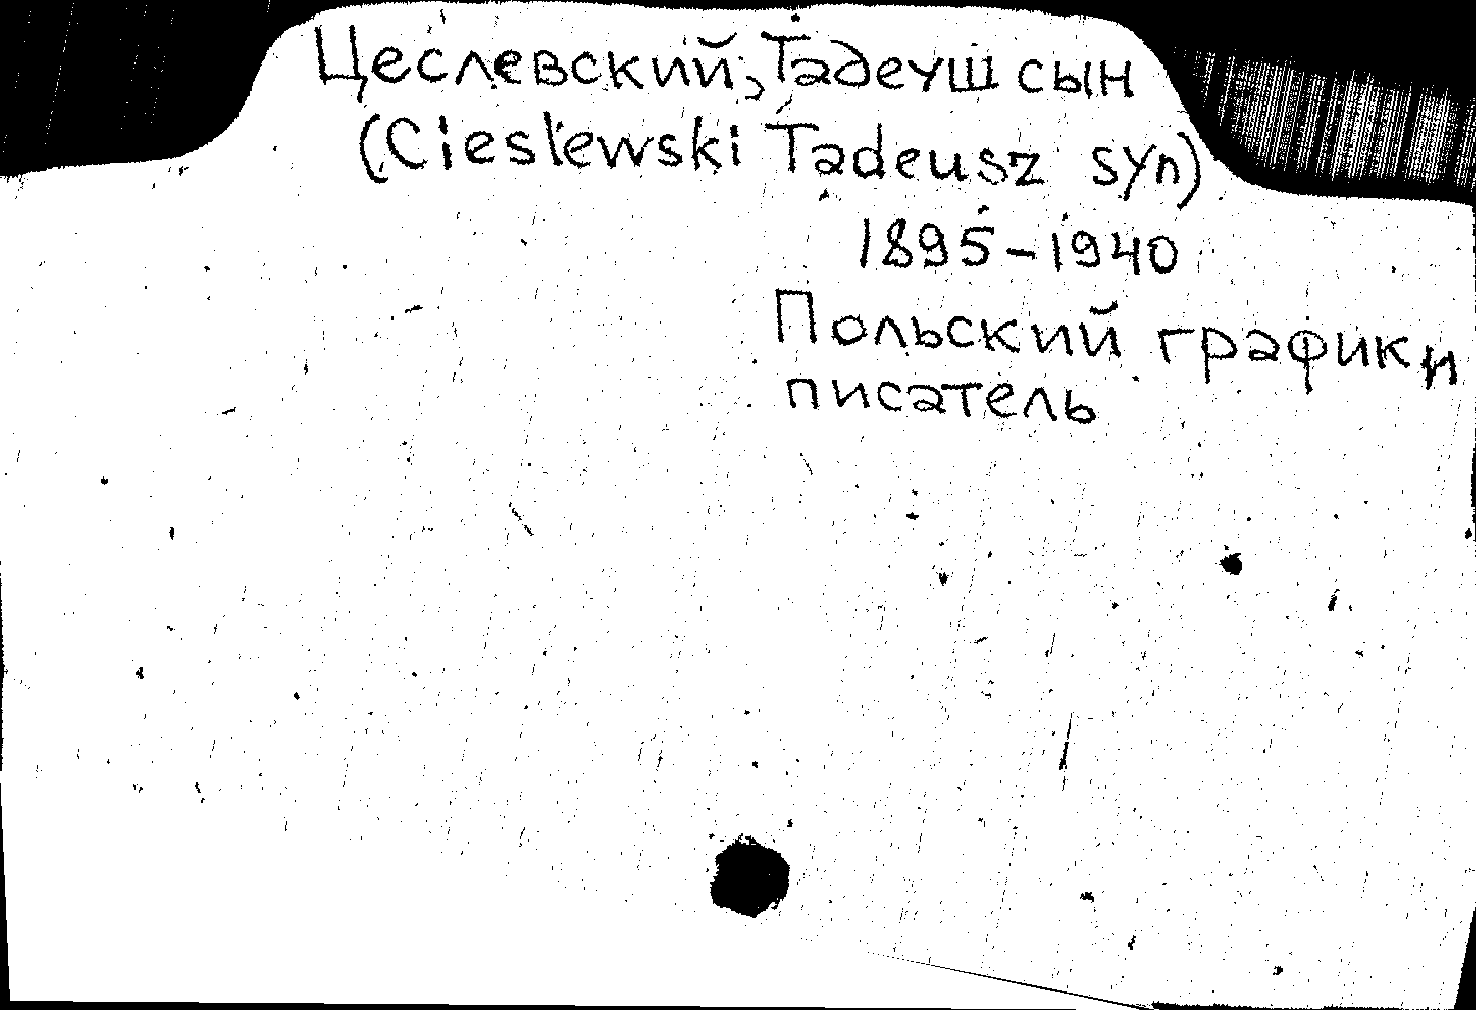 Цеслевский, Тадеуш сын
(Cieslewski Tadeusz syn)
1895-1940
Польский график и
писатель